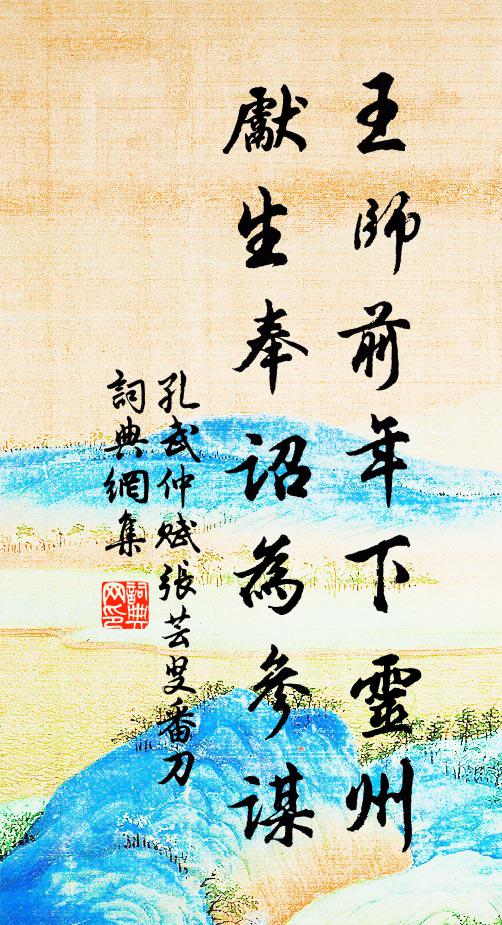 王師前年下靈州
獻生奉詔為參謀
孔武仲賦張芸叟番刀
詞典網集
詞典